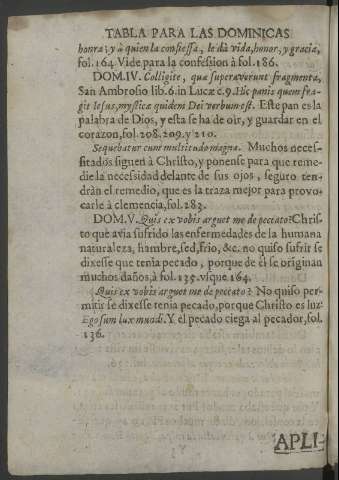 TABLA PARA LAS DOMINICAS
honra; y à quien la confiessa, le dà vida, honor, y gracia,
fol. 164. Vide para la confession à fol. 186.
DOM. IV. Colligite, quæ superaverunt fragmenta,
San Ambrosio lib. 6. in Lucæ c. 9. Hic panis quem fra-
git Iesus, mysticæ quidem Dei verbum est. Este pan es la
palabra de Dios, y esta se ha de oìr, y guardar en el
corazon, fol. 208. 209. y 210.
Sequebatur eum multitudo magna. Muchos neces-
sitados siguen à Christo, y ponense para que reme-
die la necessidad delante de sus ojos, seguro ten-
dràn el remedio, que es la traza mejor para provo-
carle à clemencia, fol. 283.
DOM. V. Quis ex vobis arguet me de peccato? Chris-
to que avia sufrido las enfermedades de la humana
naturaleza, hambre, sed, frio, &c. no quiso sufrir se
dixesse que tenia pecado, porque de èl se originan
muchos daños, à fol. 135. vsque 164.
Quis ex vobis arguet me de peccato? No quiso per-
mitir se dixesse tenia pecado, porque Christo es luz
Ego sum lux mundi. Y el pecado ciega al pecador, fol.
136.
APLI-